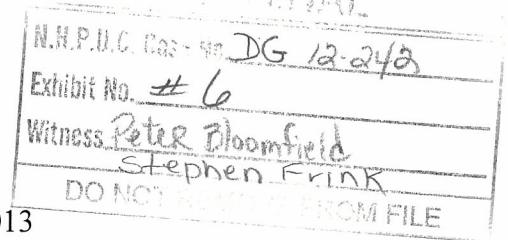 N.H.P.U.C. Cas No. DG 12-242
Exhibit No. # 6
Witness Peter Bloomfield
Stephen Frink
DO NOT FROM FILE
013